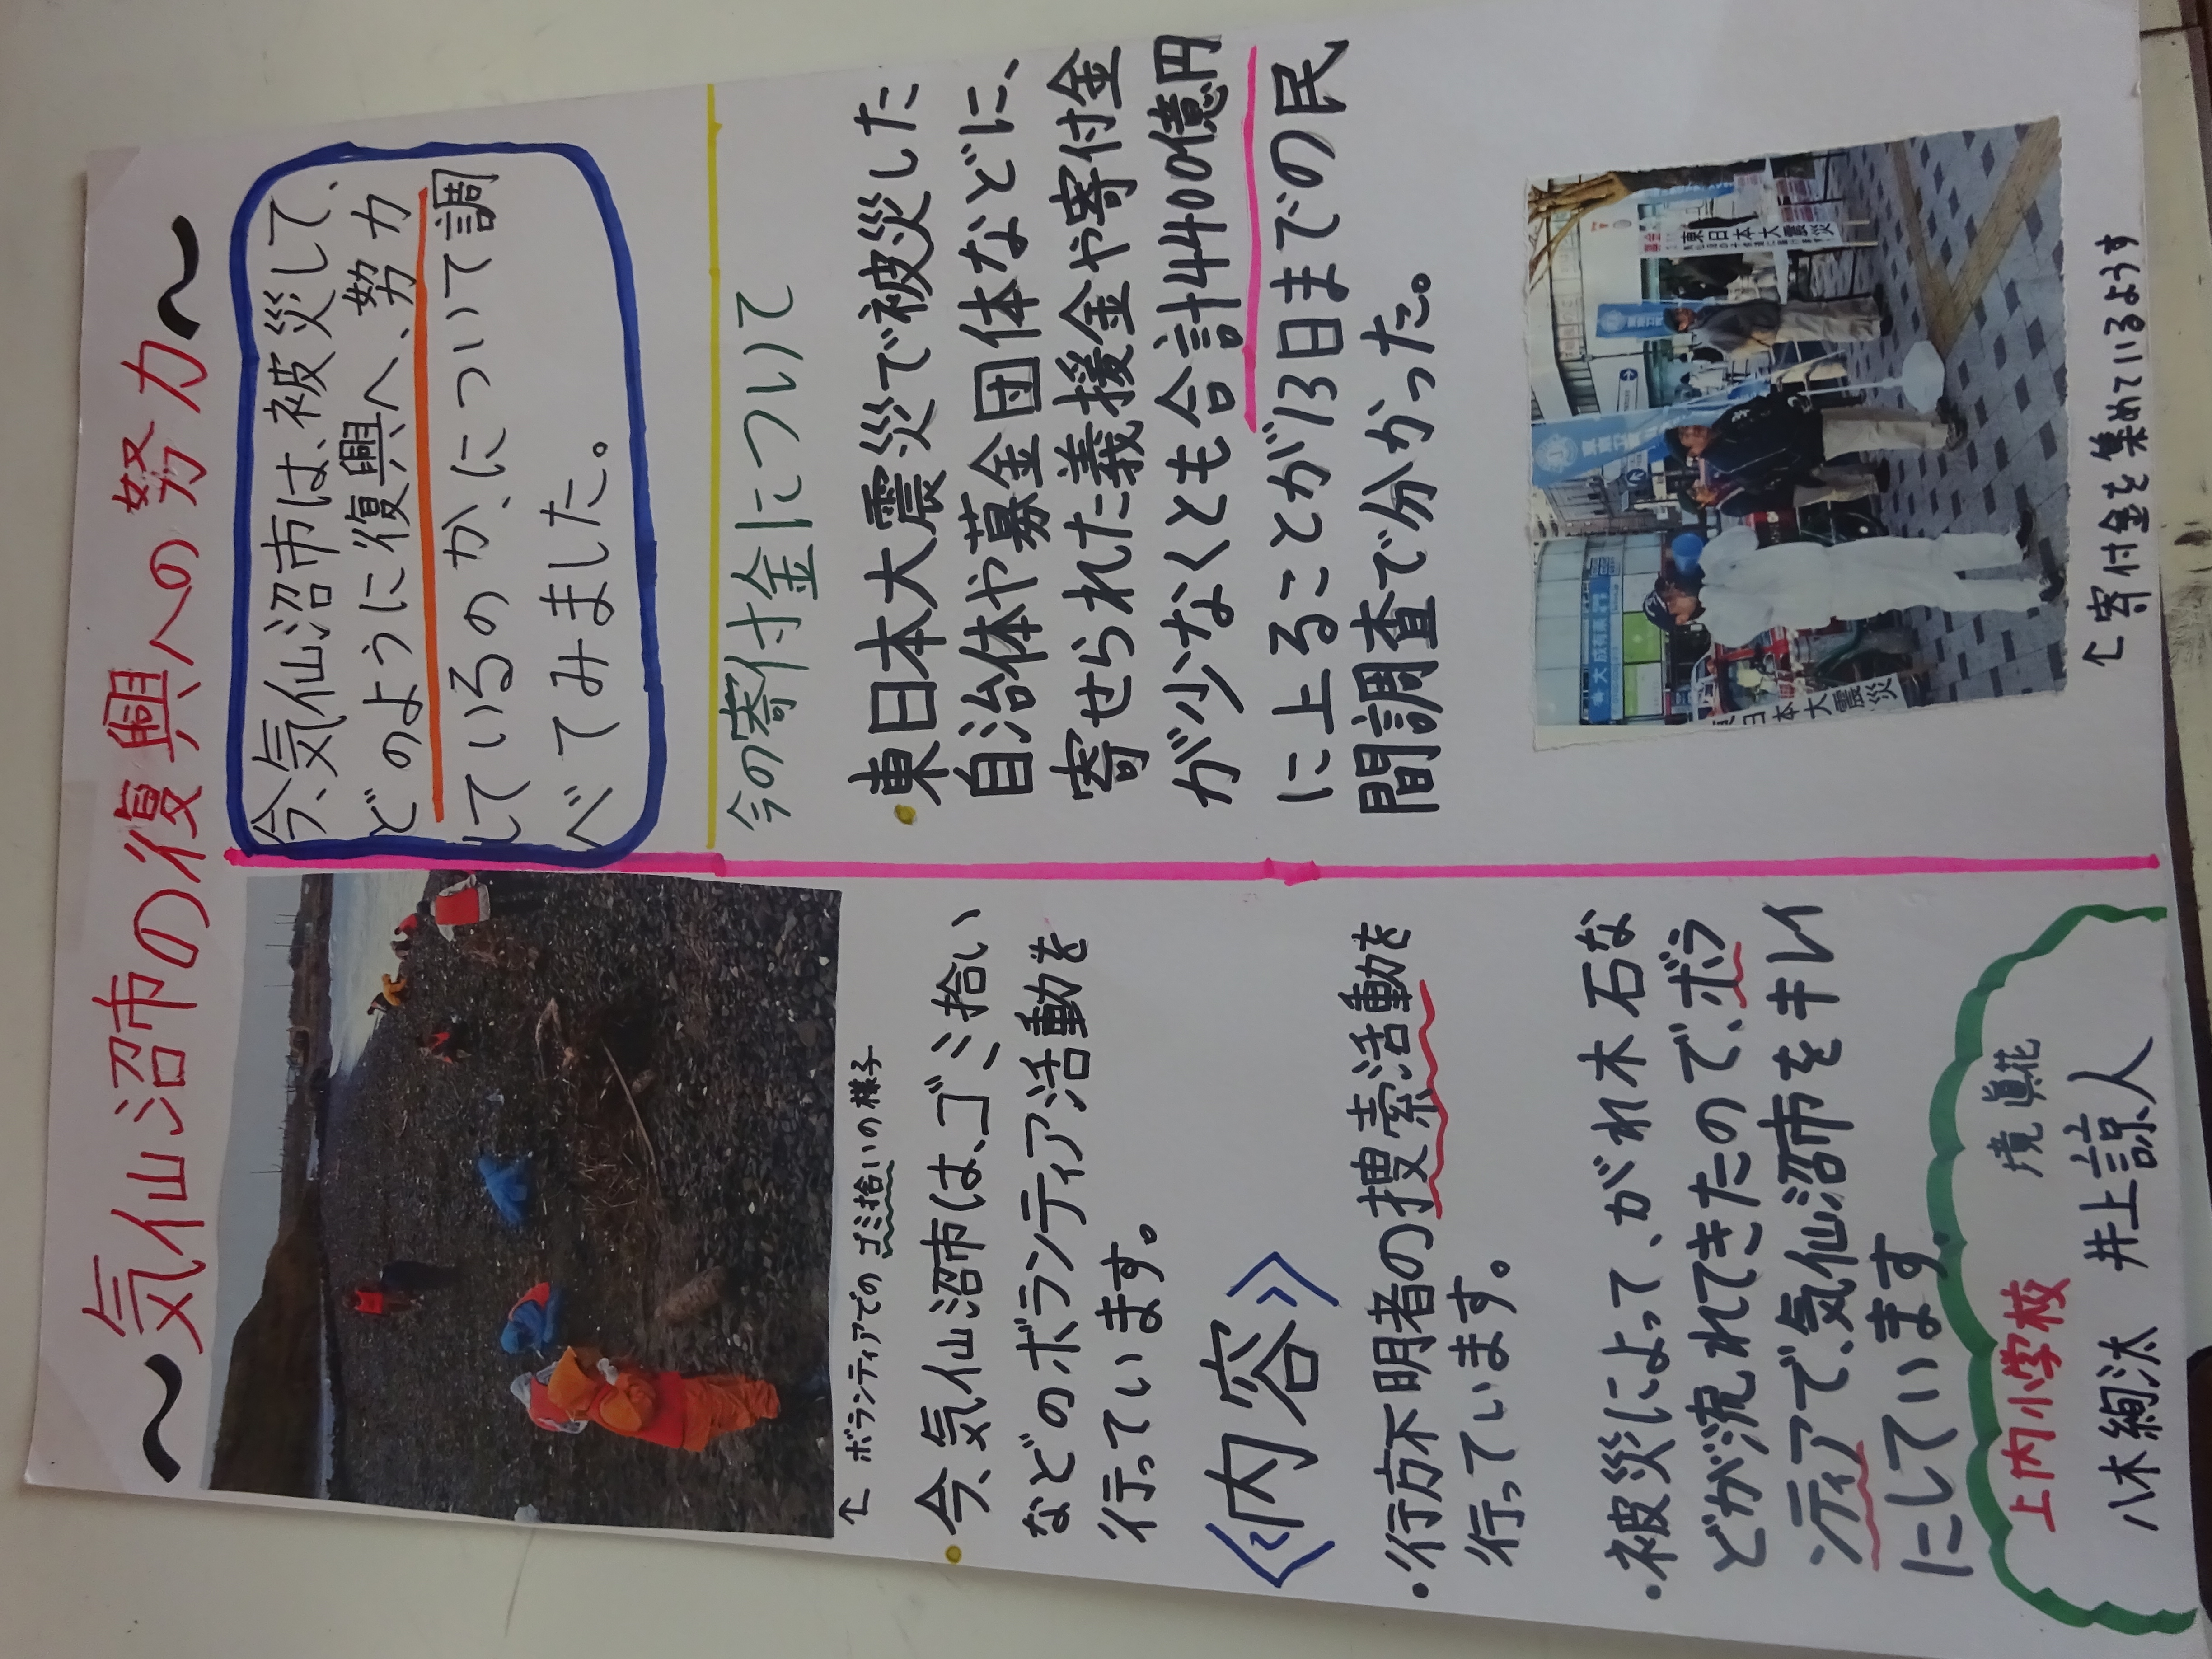 〜気仙沼市の復興への努力〜
今、気仙沼市は、被災して、
どのように復興へ、努力
しているのか、について調
べてみました。
↑ボランティアでのゴミ拾いの様子
今、気仙沼市は、ゴミ拾い
などのボランティア活動を
行っています。
《内容》
・行方不明者の捜索活動を
行っています。
・被災によって、がれ木石な
どが流れてきたので、ボラ
ンティアで、気仙沼市をキレイ
にしています。
今の寄付金について
・東日本大震災で被災した
自治体や募金団体などに、
寄せられた義援金や寄付金
が少なくとも合計4400億円
に上ることが13日までの民
間調査で分かった。
大成有楽
日本大震災
東日本大震災
↑寄付金を集めているようす
上内小学校
境 眞花
八木絢汰 井上諒人